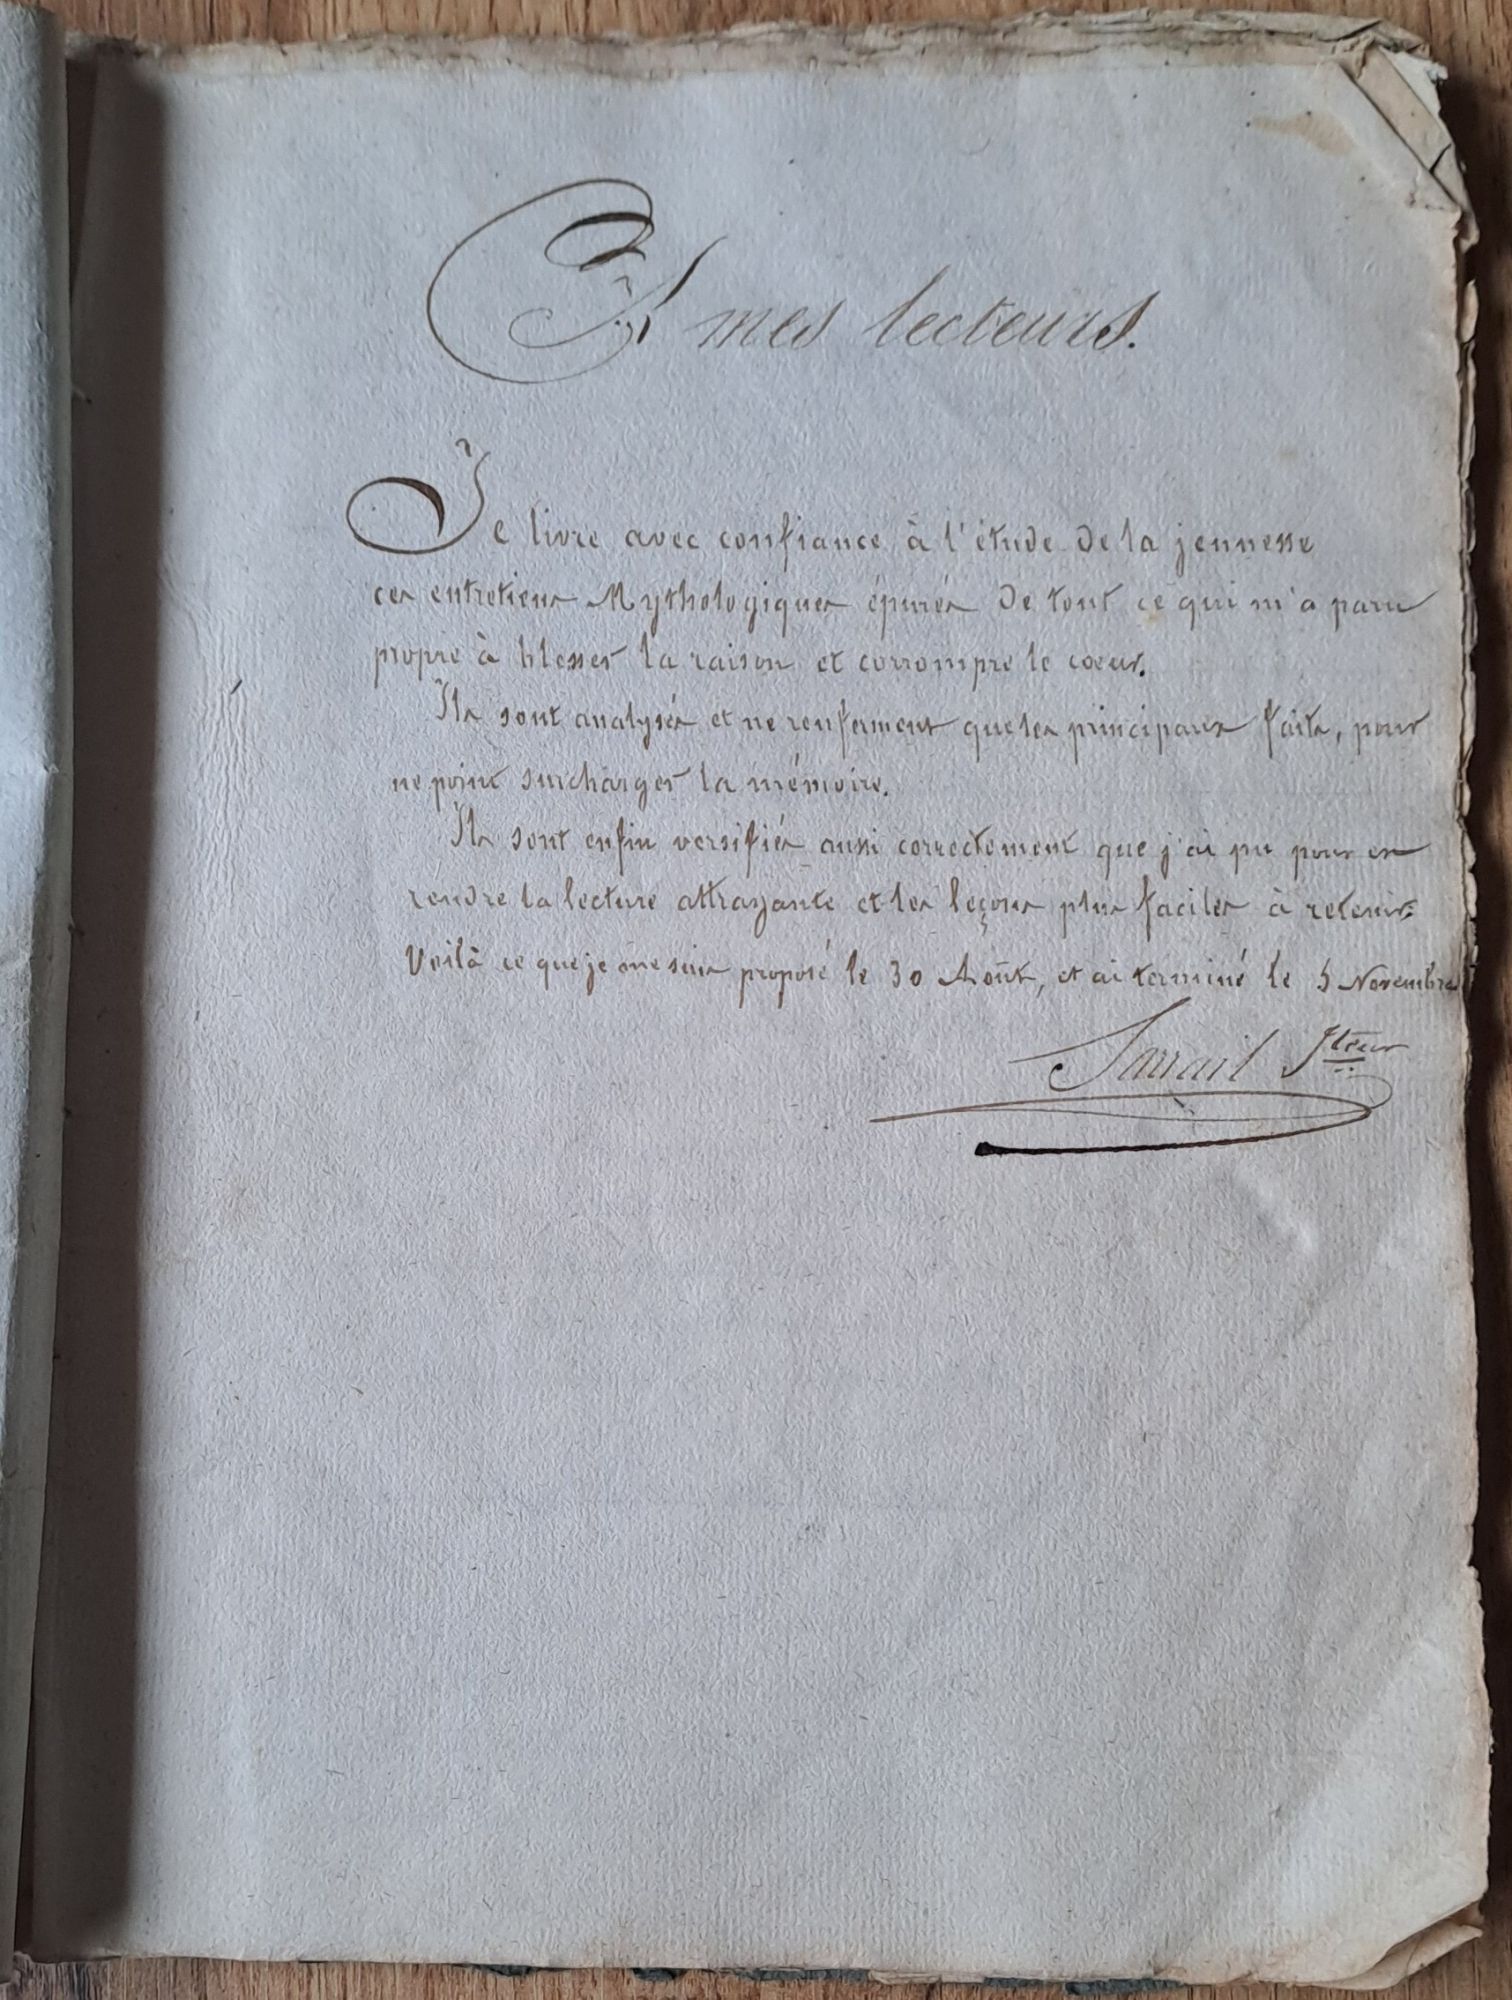 A mes lecteurs.
Je livre avec confiance à l'étude de la jeunesse
ces entretiens Mythologiques épurés de tout ce qui m'a paru
propre à blesser la raison et corrompre le coeur.
Ils sont analysés et ne renferment que les principaux faits, pour
ne point surcharger la mémoire.
Ils sont enfin versifiés aussi correctement que j'ai pu pour en
rendre la lecture attrayante et les leçons plus faciles à retenir.
Voilà ce que je me suis proposé le 30 Août, et ai terminé le 5 Novembre
Sarrail Iteur